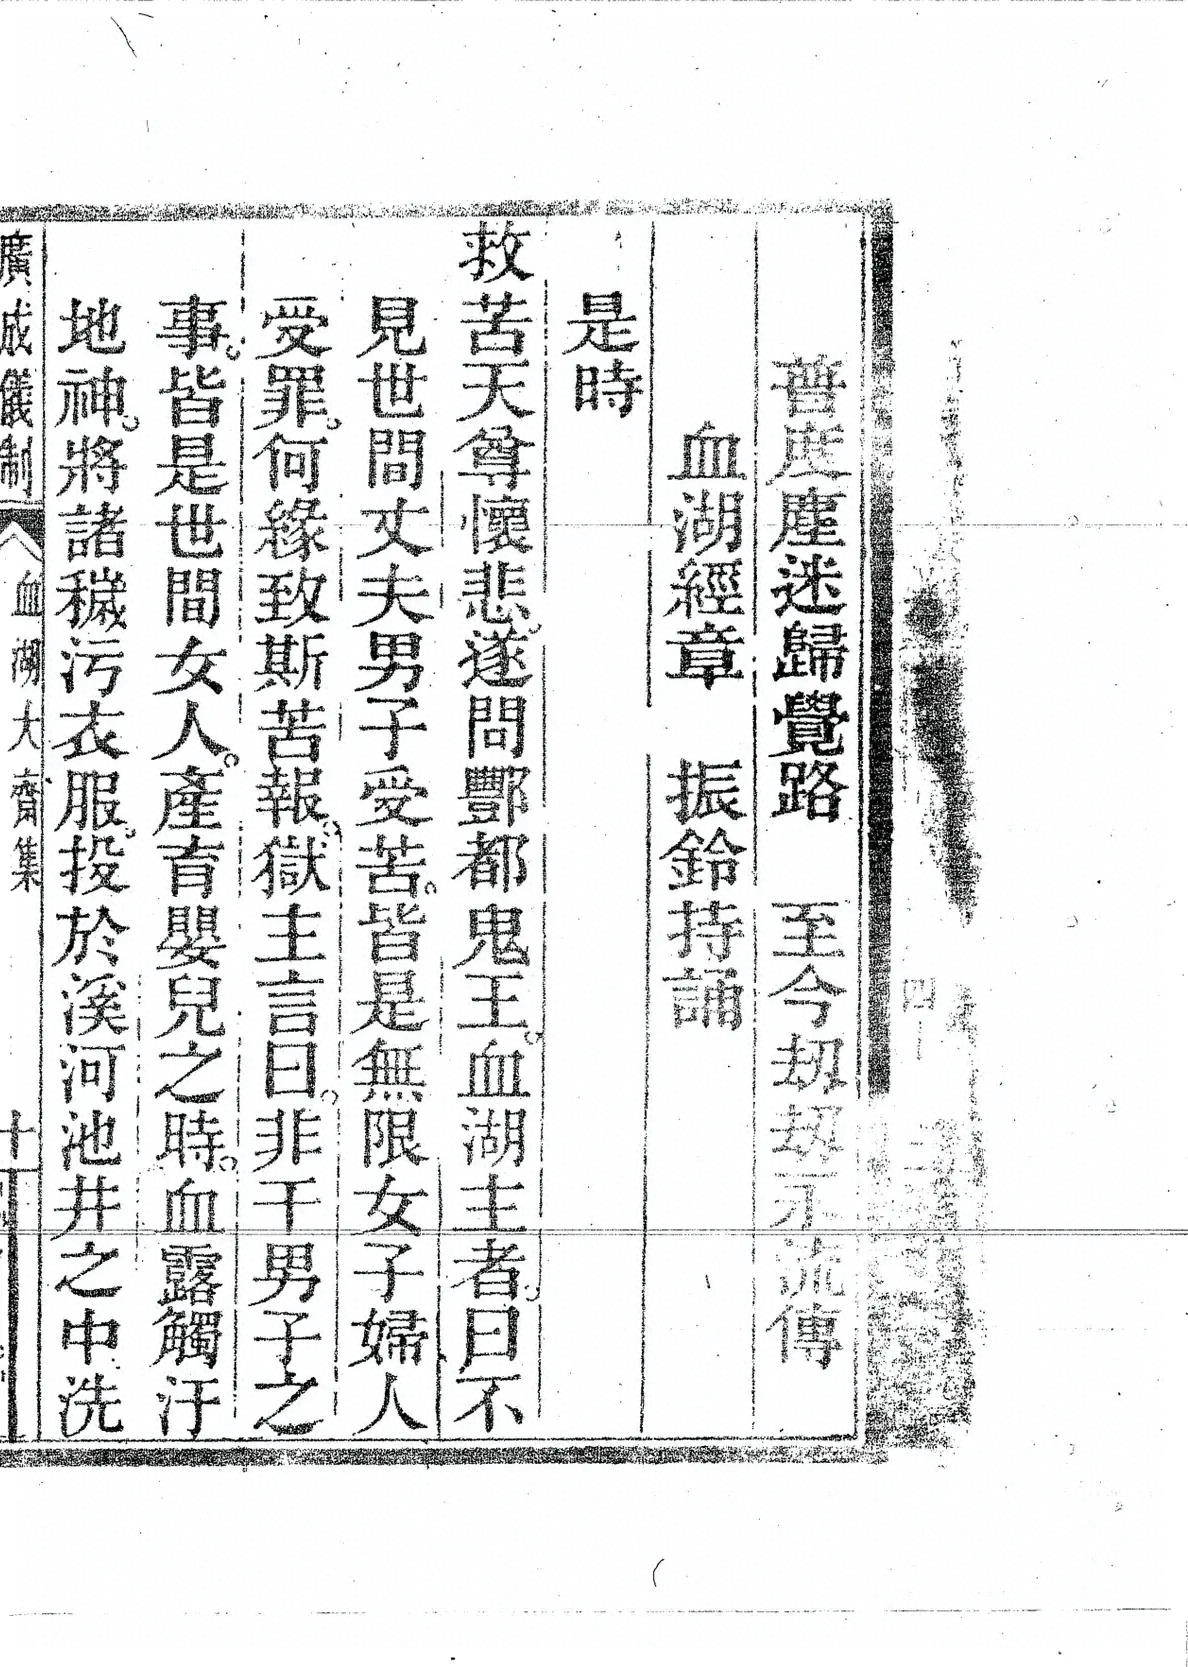 普度塵迷歸覺路　至今刼刼永流傳
血湖經章　振鈴持誦
是時
救苦天尊懷悲。遂問酆都鬼王。血湖主者。曰不
見世間丈夫男子受苦。皆是無限女子婦人
受罪。何緣致斯苦報。獄主言曰。非干男子之
事。皆是世間女人。產育嬰兒之時。血露觸汙
地神。將諸穢污衣服。投於溪河池井之中洗
廣成儀制　血湖大齋集　十